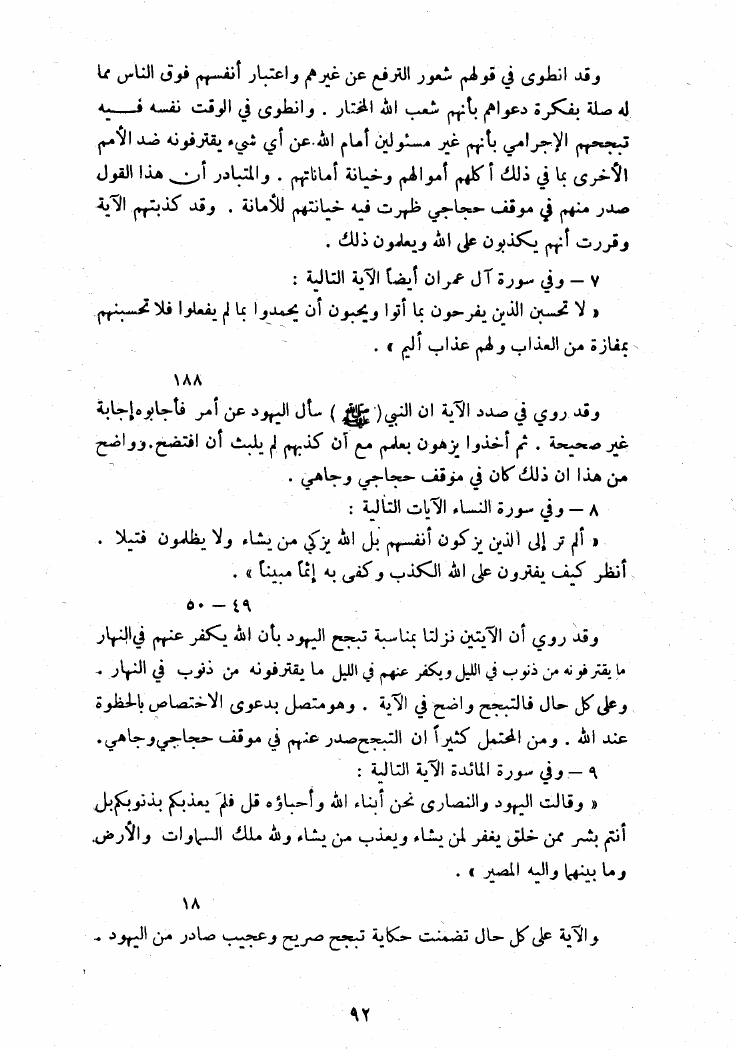 وقد انطوى في قولهم شعور الترفع عن غيرهم واعتبار أنفسهم فوق الناس مما
له صلة بفكرة دعواهم بأنهم شعب الله المختار . وانطوى في الوقت نفسه فـــيه
تبجحهم الإجرامي بأنهم غير مسئولين أمام الله عن أي شيء يقترفونه ضد الأمم
الأخرى بما في ذلك أكلهم أموالهم وخيانة أماناتهم . والمتبادر أن هذا القول
صدر منهم في موقف حجاجي ظهرت فيه خيانتهم للأمانة . وقد كذبتهم الآية
وقررت أنهم يكذبون على الله ويعلمون ذلك .
٧ – وفي سورة آل عمران أيضاً الآية التالية :
« لا تحسبن الذين يفرحون بما أتوا ويحبون أن يحمدوا بما لم يفعلوا فلا تحسبنهم
بمفازة من العذاب ولهم عذاب أليم » .
١٨٨
وقد روي في صدد الآية ان النبي ( ﷺ ) سأل اليهود عن أمر فأجابوه إجابة
غير صحيحة . ثم أخذوا يزهون بعلمهم مع أن كذبهم لم يلبث أن افتضح . وواضح
من هذا ان ذلك كان في موقف حجاجي وجاهي .
٨ – وفي سورة النساء الآيات التالية :
« ألم تر إلى الذين يزكون أنفسهم بل الله يزكي من يشاء ولا يظلمون فتيلا .
أنظر كيف يفترون على الله الكذب وكفى به إثماً مبيناً » .
٤٩ – ٥٠
وقد روي أن الآيتين نزلتا بمناسبة تبجح اليهود بأن الله يكفر عنهم في النهار
ما يقترفونه من ذنوب في الليل ويكفر عنهم في الليل ما يقترفونه من ذنوب في النهار .
وعلى كل حال فالتبجح واضح في الآية . وهو متصل بدعوى الاختصاص بالحظوة
عند الله . ومن المحتمل كثيراً ان التبجح صدر عنهم في موقف حجاجي وجاهي .
٩ – وفي سورة المائدة الآية التالية :
« وقالت اليهود والنصارى نحن أبناء الله وأحباؤه قل فلم يعذبكم بذنوبكم بل
أنتم بشر ممن خلق يغفر لمن يشاء ويعذب من يشاء ولله ملك السماوات والأرض
وما بينهما واليه المصير » .
١٨
والآية على كل حال تضمنت حكاية تبجح صريح وعجيب صادر من اليهود .
٩٢